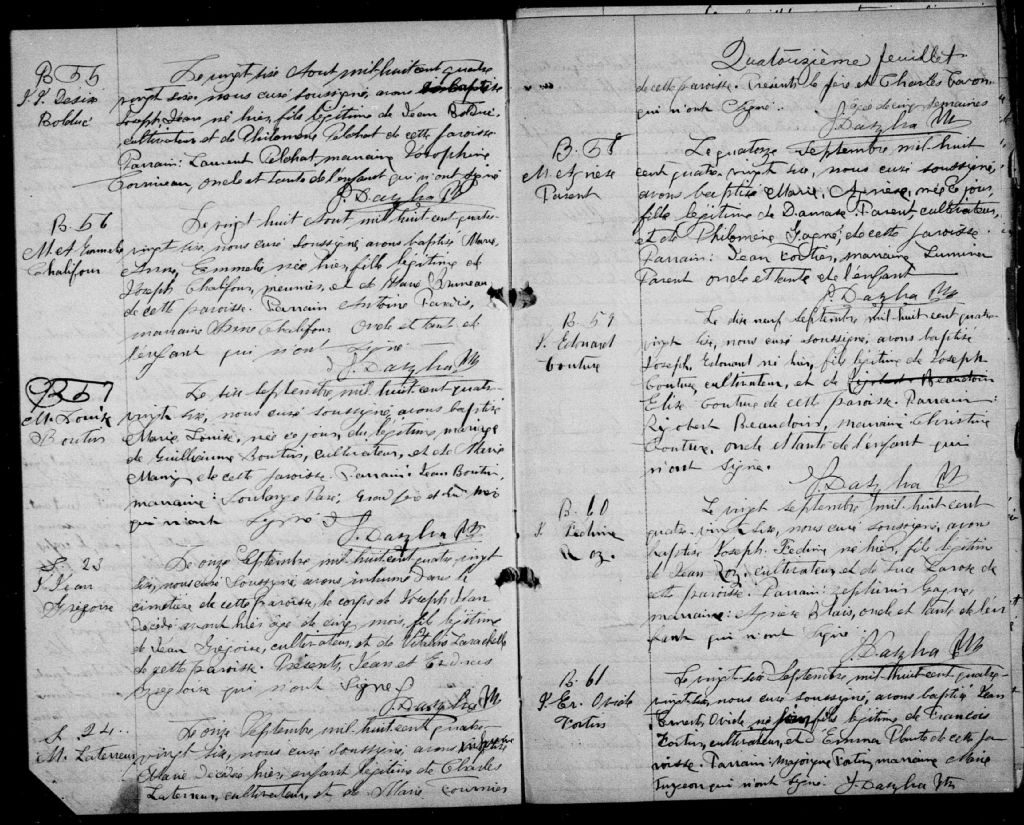 B 55
J. J. Desir
Bolduc
Le vingt six Aout mil huit cent quatre
vingt six, nous curé soussigné, avons baptisé
Joseph Jean né hier, fils légitime de Jean Bolduc
cultivateur et de Philomène Pelchat de cette paroisse
Parrain: Laurent Pelchat, marraine Josephine
oncle et tante de l'enfant qui n'ont signé
B. 56
M. A. Emmelie
Chalifour
Le vingt huit Aout mil huit cent quatre
vingt six, nous curé soussigné, avons baptisé Marie,
Anne, Emmelie née hier, fille légitime de
Joseph Chalifour, meunier, et de Marie Bruneau
de cette paroisse. Parrain Antoine
marraine Anne Chalifour oncle et tante de
l'enfant qui n'ont signé
B 57
M. Louise
Boutin
Le six septembre mil huit cent quatre
vingt six, nous curé soussigné, avons baptisé
Marie Louise, née ce jour, du légitime mariage
de Guillaume Boutin, cultivateur, et de Marie
de cette paroisse. Parrain: Jean Boutin,
marraine:
qui n'ont signé
S. 23
J. Jean
Grégoire
Le onze Septembre mil huit cent quatre vingt
six, nous curé soussigné avons inhumé dans le
cimetière de cette paroisse, le corps de Joseph Jean
décédé avant hier âgé de cinq mois, fils légitime
de Jean Grégoire, cultivateur, et de
de cette paroisse. Présents, Jean et
Grégoire qui n'ont signé
S. 24
M. Laterreur
Le onze Septembre mil huit cent quatre
vingt six, nous curé soussigné, avons
Marie décédée hier, enfant légitime de Charles
Laterreur, cultivateur, et de Marie Fournier
Quatorzième feuillet
de cette paroisse. Présents le père et Charles
qui n'ont signé. âgée de cinq semaines
B. 58
M. Agnèse
Parent
Le quatorze Septembre mil huit
cent quatre vingt six, nous curé soussigné,
avons baptisé Marie, Agnèse, née ce jour,
fille légitime de Damase Parent cultivateur,
et de Philomène Gagné, de cette paroisse.
Parrain: Jean marraine Lumina
Parent oncle et tante de l'enfant
B. 59
J. Edouard
Couture
Le dix neuf septembre mil huit cent quatre
vingt six, nous curé soussigné, avons baptisé
Joseph, Edouard né hier, fils légitime de Joseph
Couture, cultivateur, et de Beaudoin
Elise Couture de cette paroisse. Parrain:
Beaudoin, marraine Christine
Couture, oncle et tante de l'enfant qui
n'ont signé.
B. 60
J. Fédime
Roy
Le vingt septembre mil huit cent
quatre-vingt six, nous curé soussigné, avons
baptisé Joseph Fédime né hier, fils légitime
de Jean Roy, cultivateur, et de Luce Larose de
cette paroisse. Parrain: Gagné,
marraine: Agnèse oncle et tante de l'en
fant qui n'ont signé.
B. 61
J. Er. Ovide
Fortin
Le vingt six Septembre mil huit cent quatre
vingt six, nous curé soussigné, avons baptisé Jean
Ernest, Ovide né fils légitime de François
Fortin, cultivateur, et d'Emma Plante de cette pa
roisse. Parrain: Majorique Fortin, marraine Marie
Turgeon qui n'ont signé.